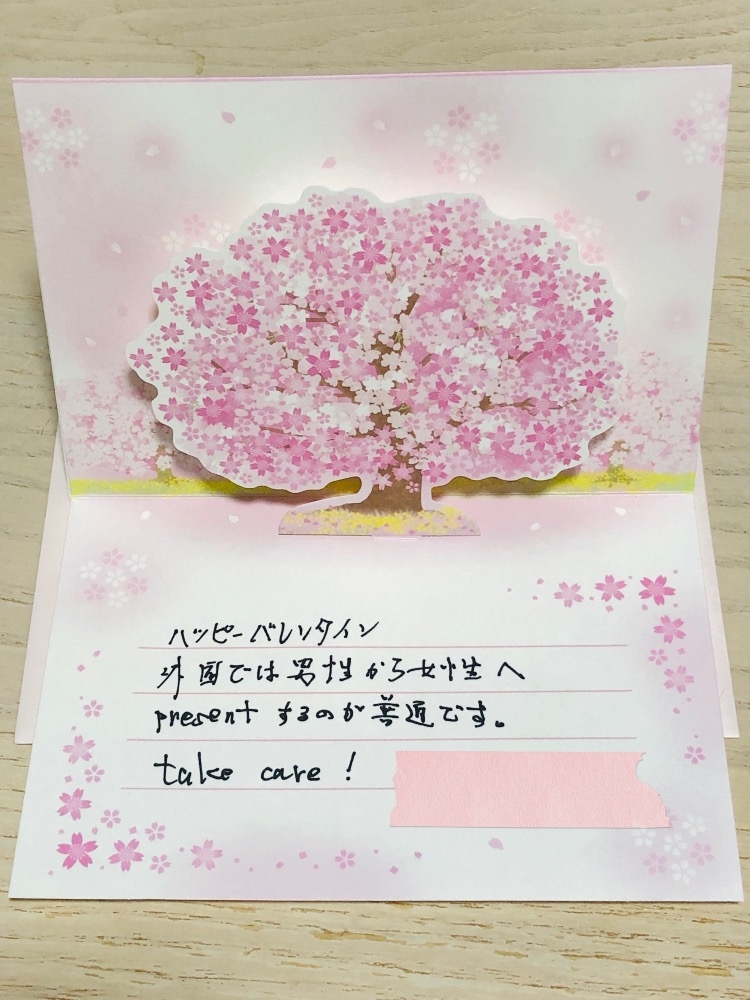 ハッピーバレンタイン
外国では男性から女性へ
presentするのが普通です。
take care!